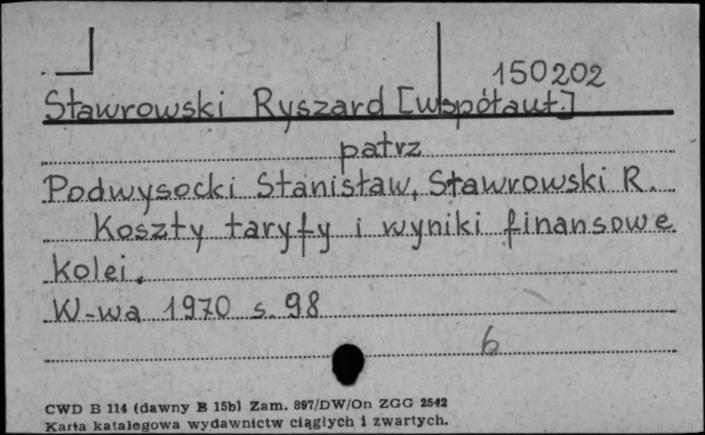 150202
Stawrowski Ryszard [współaut.]
patrz
Podwysocki Stanisław, Stawrowski R.
Koszty taryfy i wyniki finansowe
kolei.
W-wa 1970 s. 98
6
CWD B 114 (dawny B 15b) Zam. 897/DW/On ZGG 2542
Karta katalogowa wydawnictw ciągłych i zwartych.